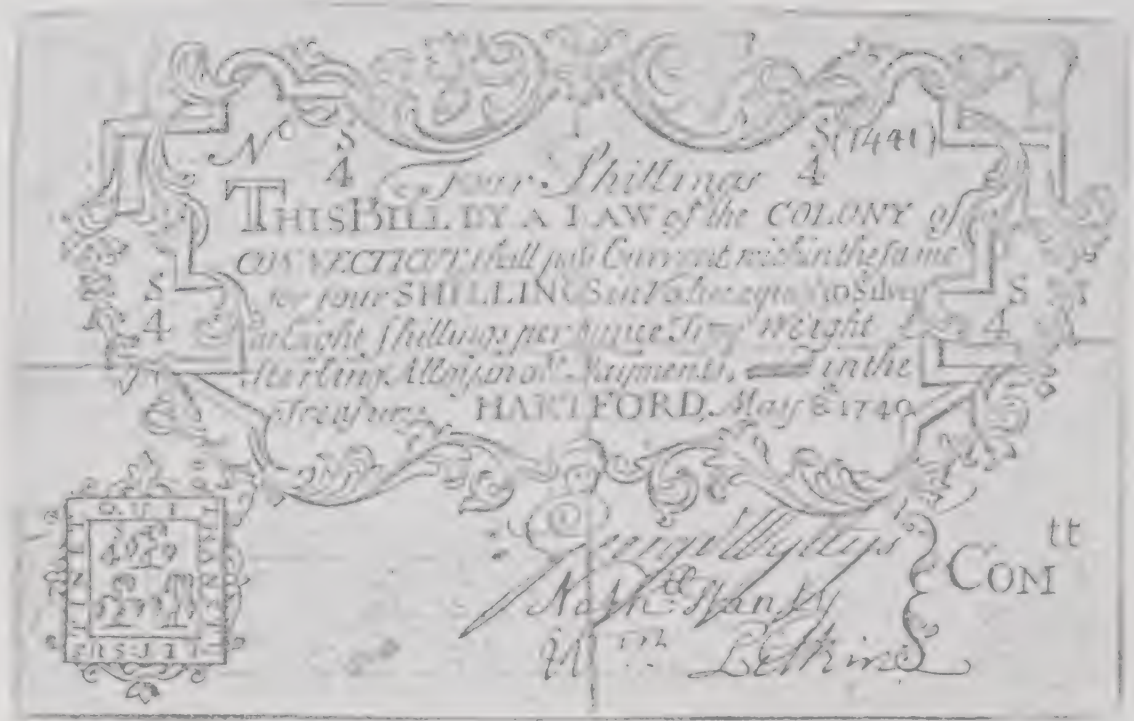 No S 4 S 4 (1441)
four Shillings
THIS BILL BY A LAW of the COLONY of
CONNECTICUT shall pass Current within the same
for four SHILLINGS in Value equal to Silver
at Eight shillings per Ounce Troy Weight
Sterling Alloy in all Payments, in the
Treasury. HARTFORD, May 8 1740
S 4
S 4
QUI
Nath
Wm
COMtt